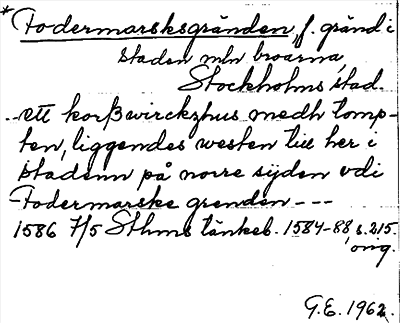 * Fodermarsksgränden, f. gränd i
staden mln broarna,
Stockholms stad.
..ett korßwirckzhus medh tomp-
ten, liggendes westen till her i
stadenn på norre sijden vdi
Fodermarske grenden ---
1586 7/5 Sthms tänkeb. 1584-88 s. 215.
orig.
G.E. 1962.